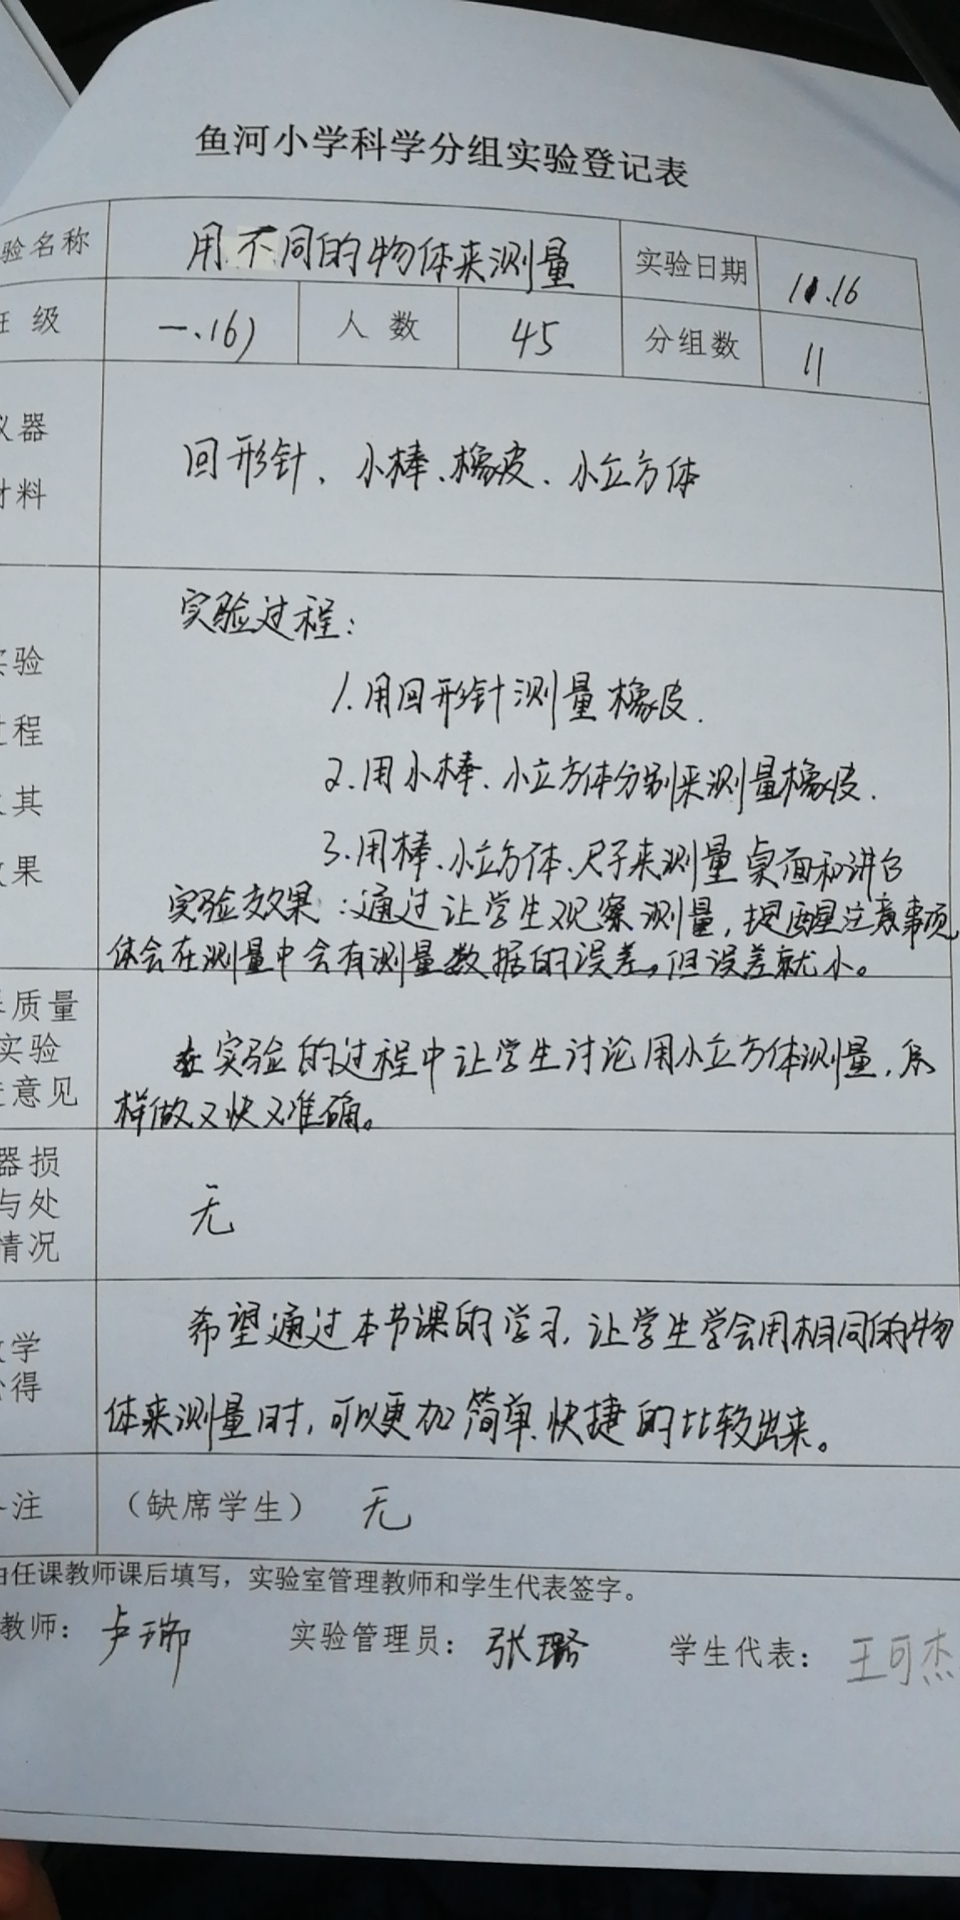 鱼河小学科学分组实验登记表
验名称 用不同的物体来测量 实验日期 10.16
级 一.(6) 人数 45 分组数 11
器
材料
回形针、小棒、橡皮、小立方体
验
程
其
果
实验过程:
1.用回形针测量橡皮.
2.用小棒、小立方体分别来测量橡皮.
3.用棒、小立方体、尺子来测量桌面和讲台
实验效果:通过让学生观察测量,提醒注意事项
体会在测量中会有测量数据的误差。但误差就小。
质量
实验
意见
在实验的过程中让学生讨论用小立方体测量,
样做又快又准确。
器损
与处
情况
无
学
得
希望通过本节课的学习,让学生学会用相同的物
体来测量时,可以更加简单、快捷的比较出来。
注 (缺席学生) 无
由任课教师课后填写,实验室管理教师和学生代表签字。
教师: 卢瑞 实验管理员: 张璐 学生代表: 王可杰